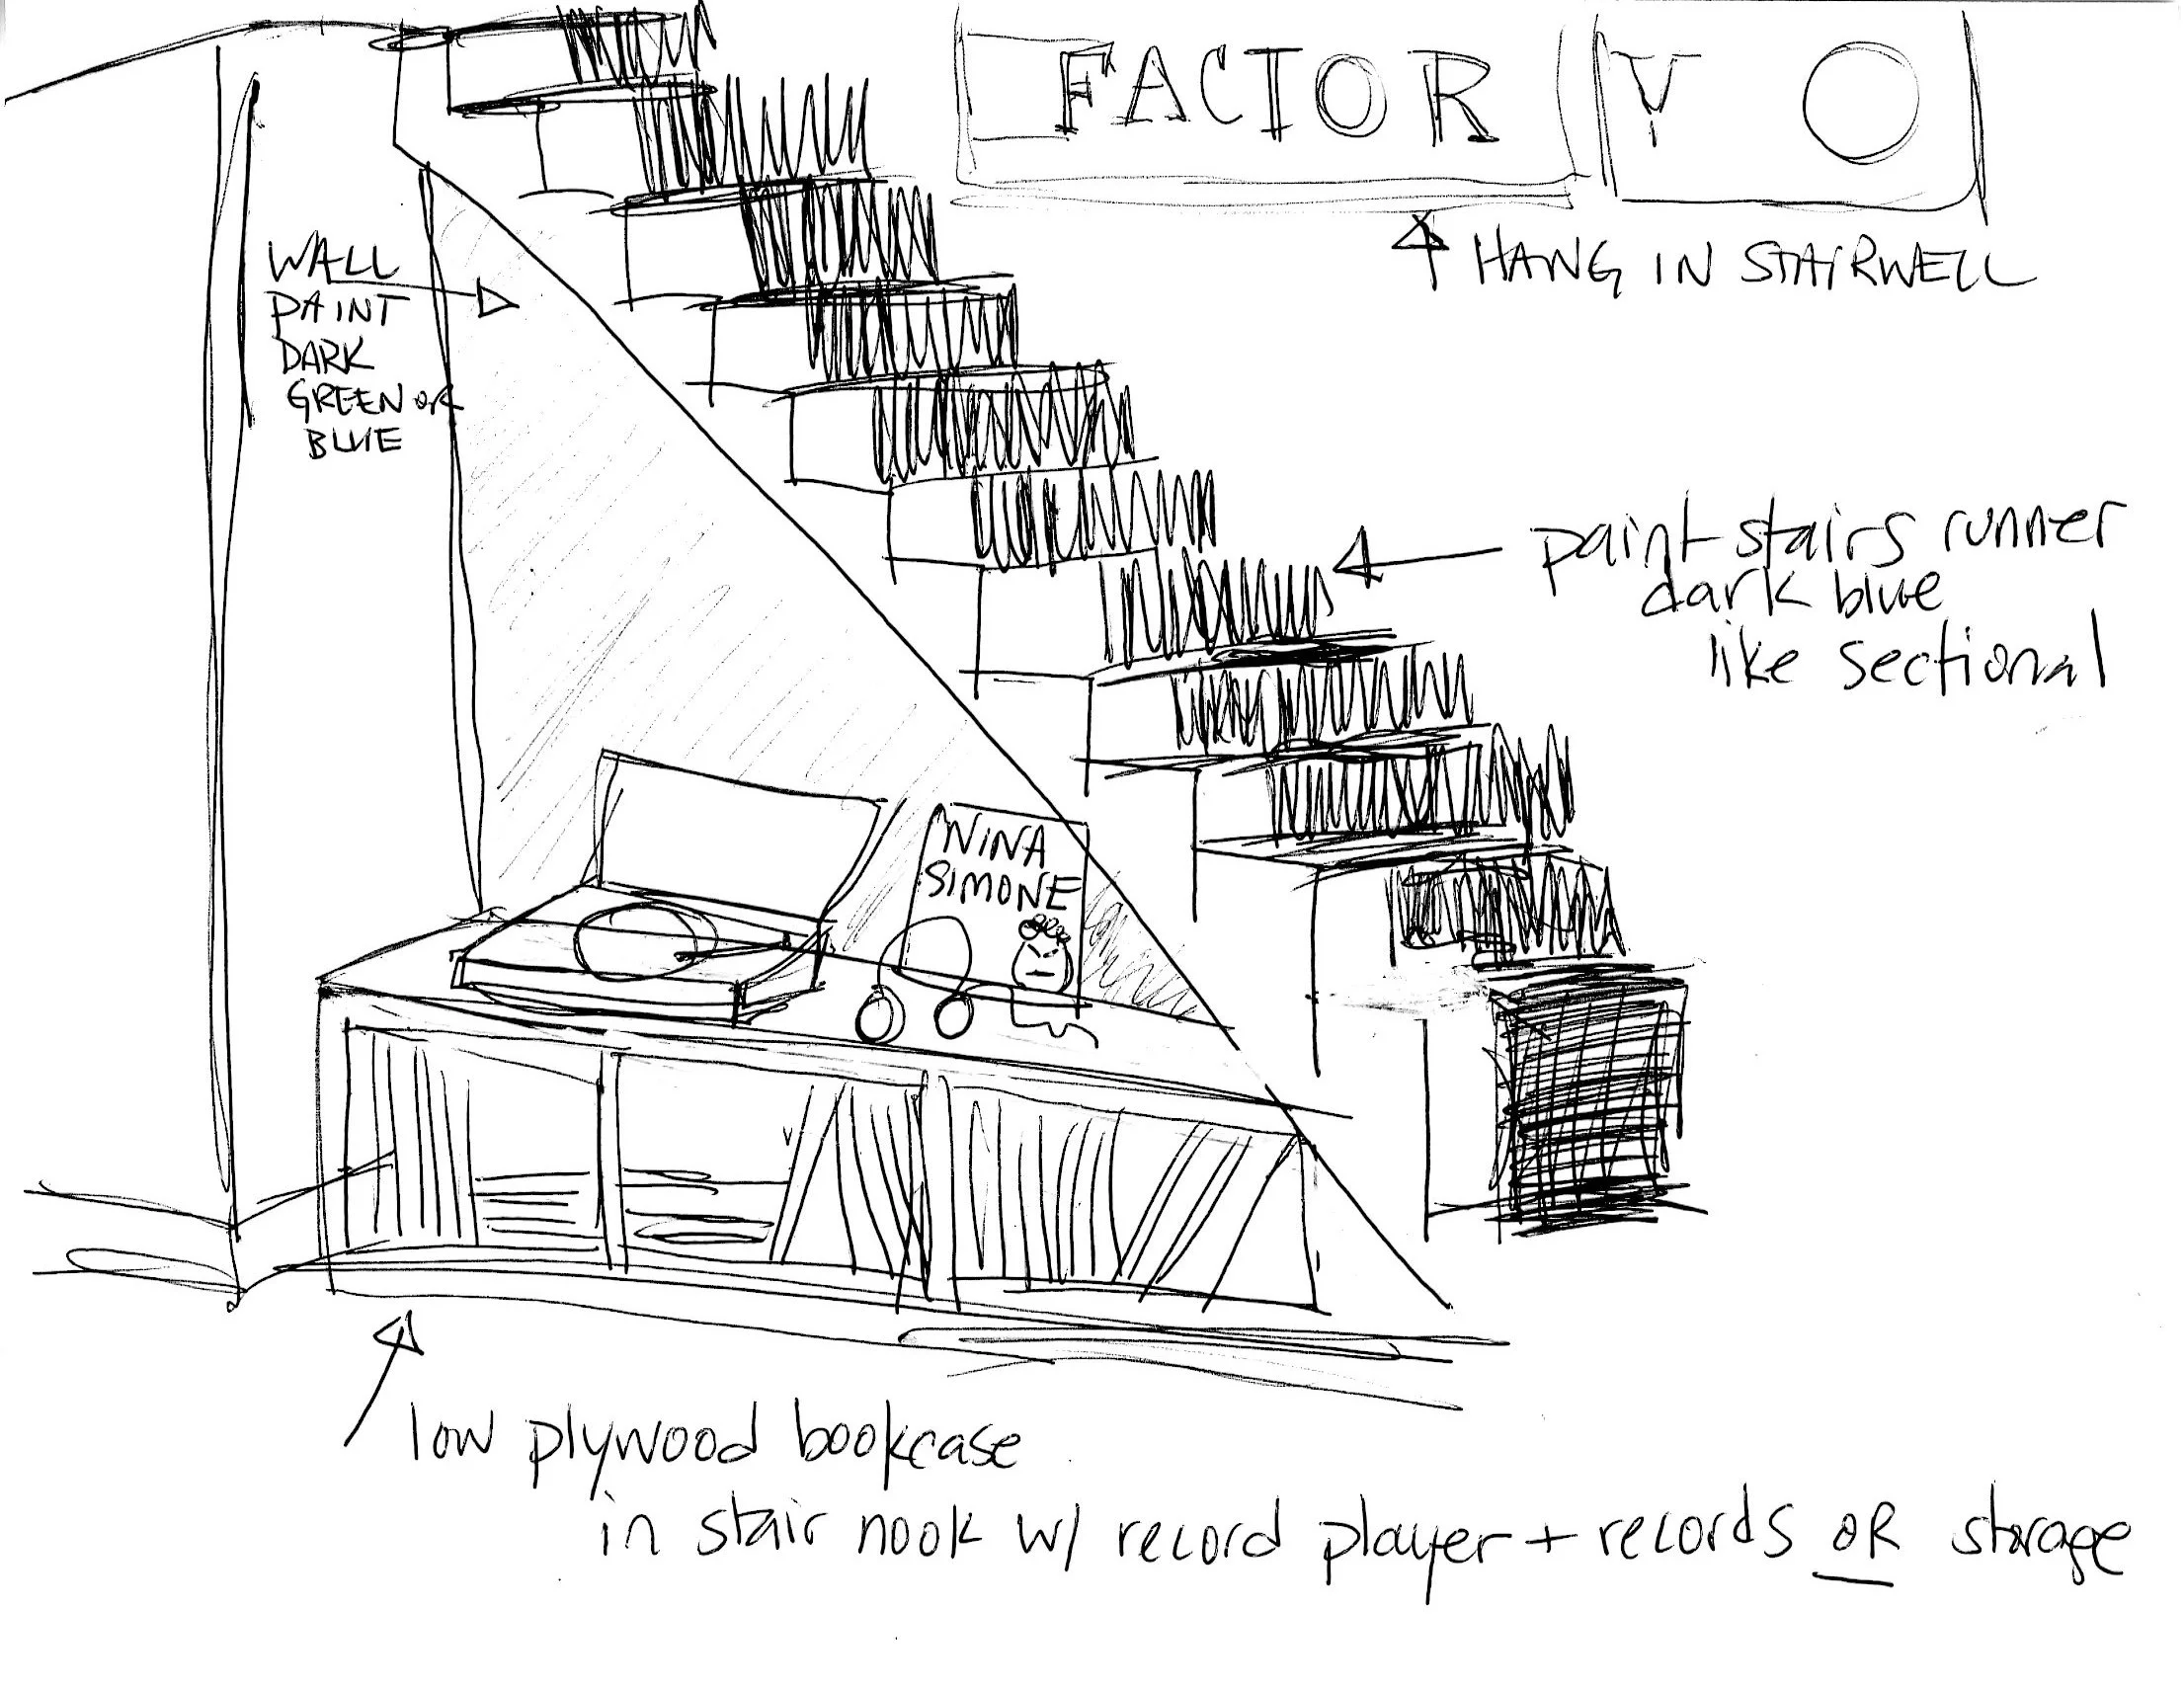 FACTORY O
HANG IN STAIRWELL
WALL
PAINT
DARK
GREEN OR
BLUE
paint stairs runner
dark blue
like sectional
NINA
SIMONE
low plywood bookcase
in stair nook w/ record player + records OR storage